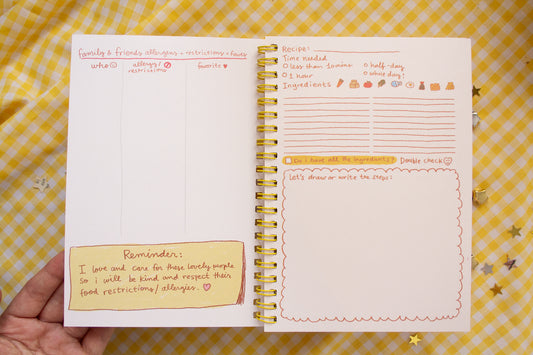 family & friends allergens + restrictions + faves
who
allergy/
restrictions
favorite
Reminder:
I love and care for these lovely people
so i will be kind and respect their
food restrictions/allergies.
Recipe:
Time needed
less than 10mins
half-day
1 hour
whole day!
Ingredients
Do i have all the ingredients?
Double check
let's draw or write the steps: